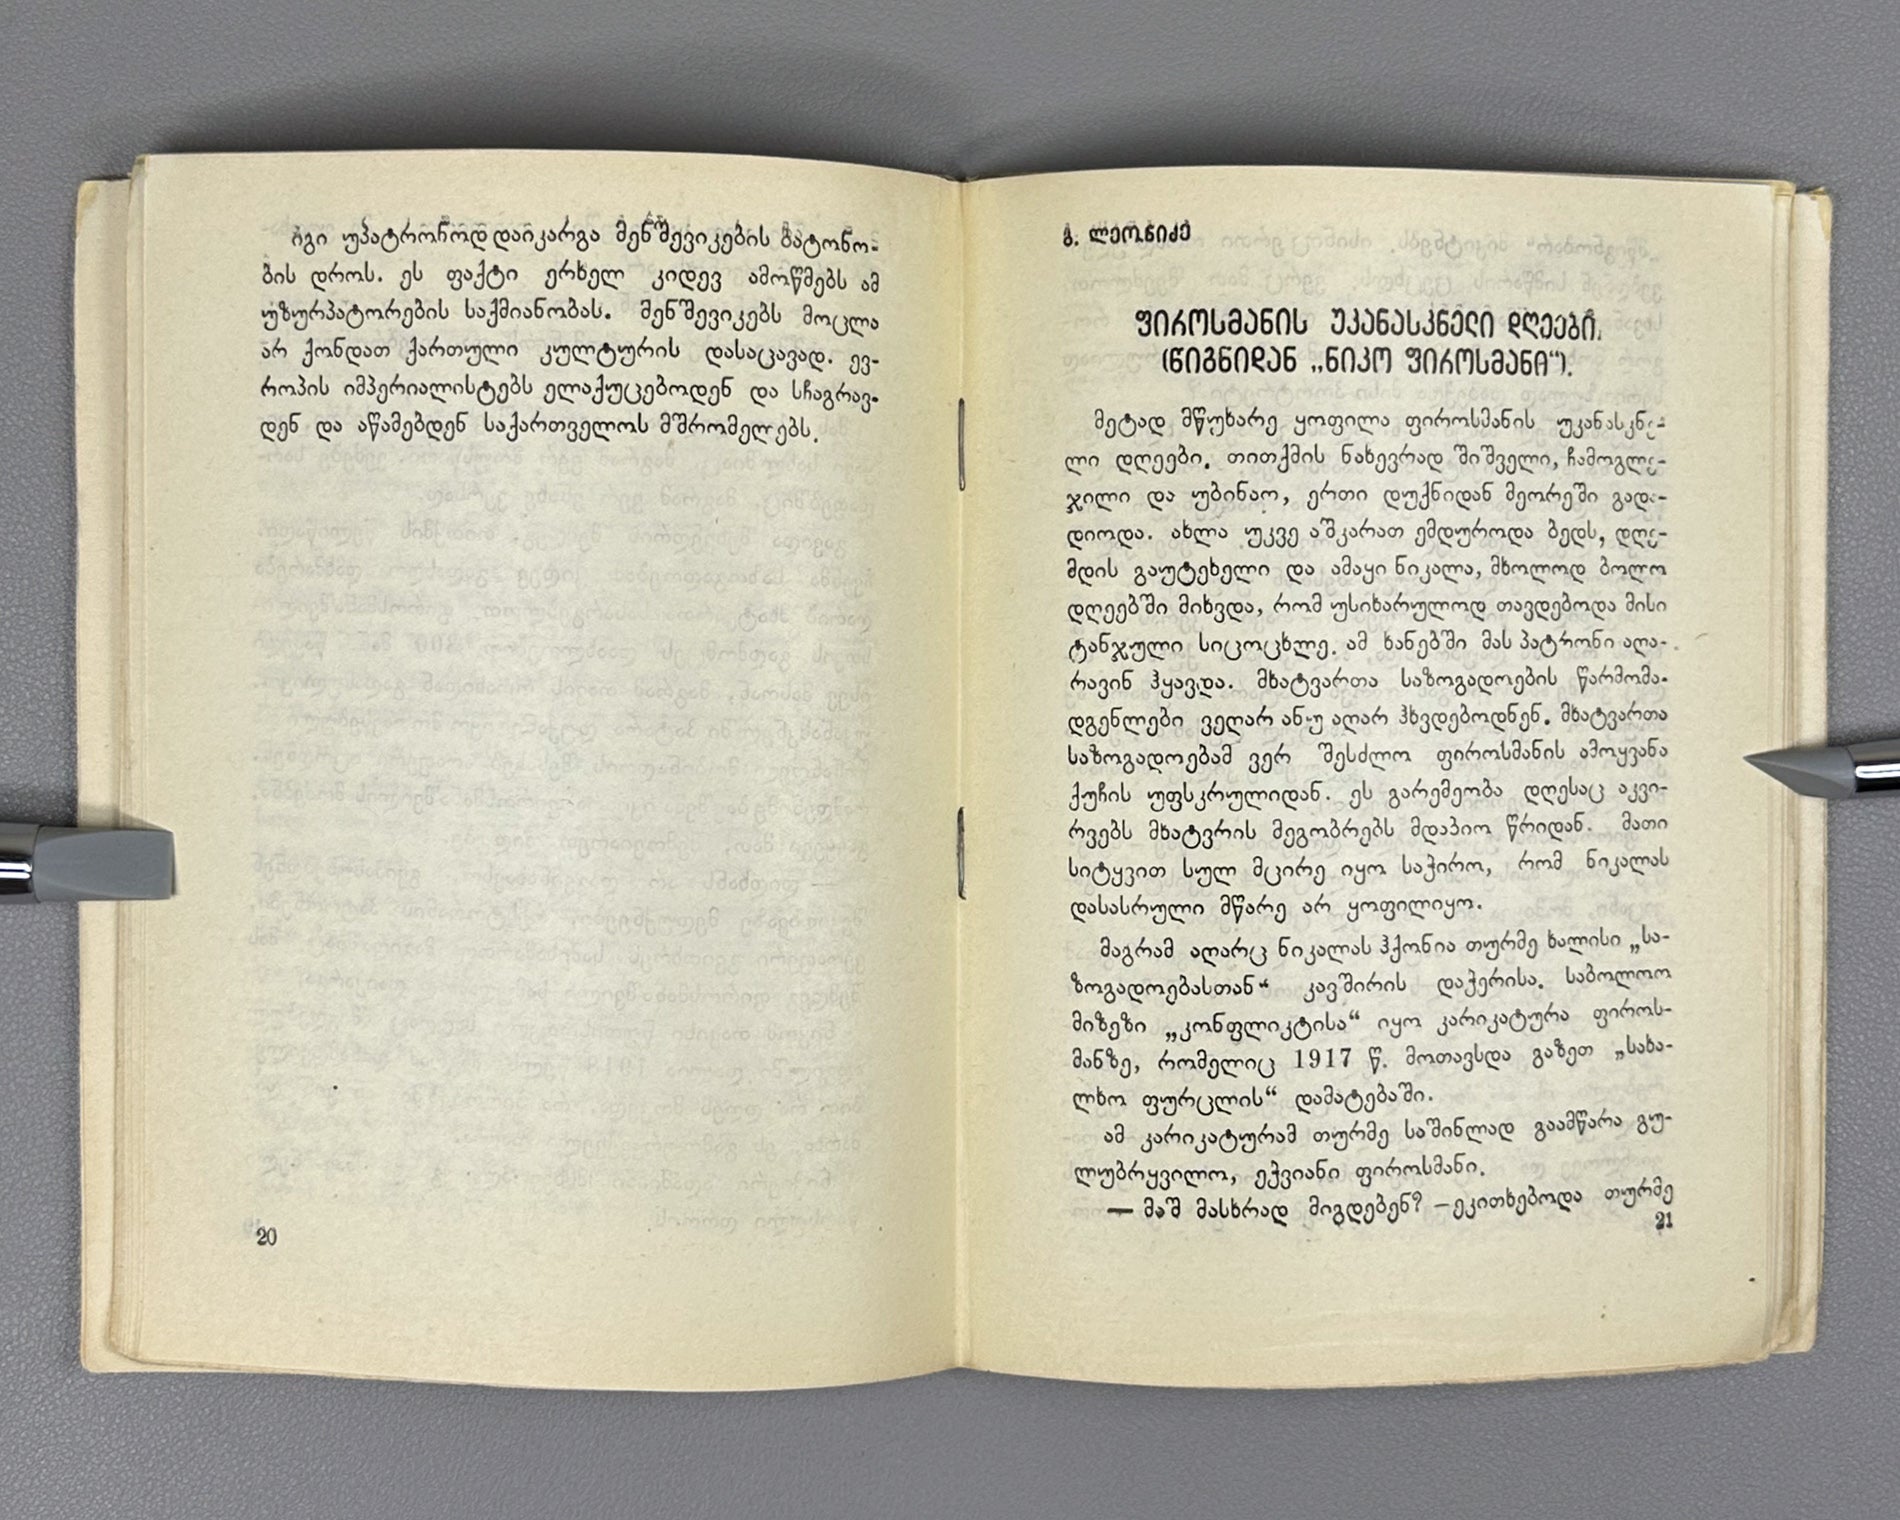 იგი უპატრონოდ დაიკარგა მენშევიკების ბატონო-
ბის დროს. ეს ფაქტი ერხელ კიდევ ამოწმებს ამ
უზურპატორების საქმიანობას. მენშევიკებს მოცლა
არ ქონდათ ქართული კულტურის დასაცავად. ევ-
როპის იმპერიალისტებს ელაქუცებოდენ და სჩაგრავ-
დენ და აწამებდენ საქართველოს მშრომელებს.
20
გ. ლეონიძე
ფიროსმანის უკანასკნელი დღეები.
(წიგნიდან „ნიკო ფიროსმანი“).
მეტად მწუხარე ყოფილა ფიროსმანის უკანასკნე-
ლი დღეები. თითქმის ნახევრად შიშველი, ჩამოგლე-
ჯილი და უბინაო, ერთი დუქნიდან მეორეში გადა-
დიოდა. ახლა უკვე აშკარათ ემდუროდა ბედს, დღე-
მდის გაუტეხელი და ამაყი ნიკალა, მხოლოდ ბოლო
დღეებში მიხვდა, რომ უსიხარულოდ თავდებოდა მისი
ტანჯული სიცოცხლე. ამ ხანებში მას პატრონი აღა-
რავინ ჰყავდა. მხატვართა საზოგადოების წარმომა-
დგენლები ვეღარ ანუ აღარ ჰხვდებოდნენ. მხატვართა
საზოგადოებამ ვერ შესძლო ფიროსმანის ამოყვანა
ქუჩის უფსკრულიდან. ეს გარემეობა დღესაც აკვი-
რვებს მხატვრის მეგობრებს მდაბიო წრიდან. მათი
სიტყვით სულ მცირე იყო საჭირო, რომ ნიკალას
დასასრული მწარე არ ყოფილიყო.
მაგრამ აღარც ნიკალას ჰქონია თურმე ხალისი „სა-
ზოგადოებასთან“ კავშირის დაჭერისა. საბოლოო
მიზეზი „კონფლიკტისა“ იყო კარიკატურა ფიროს-
მანზე, რომელიც 1917 წ. მოთავსდა გაზეთ „სახა-
ლხო ფურცლის“ დამატებაში.
ამ კარიკატურამ თურმე საშინლად გაამწარა გუ-
ლუბრყვილო, ეჭვიანი ფიროსმანი.
— მაშ მასხრად მიგდებენ? — ეკითხებოდა თურმე
21